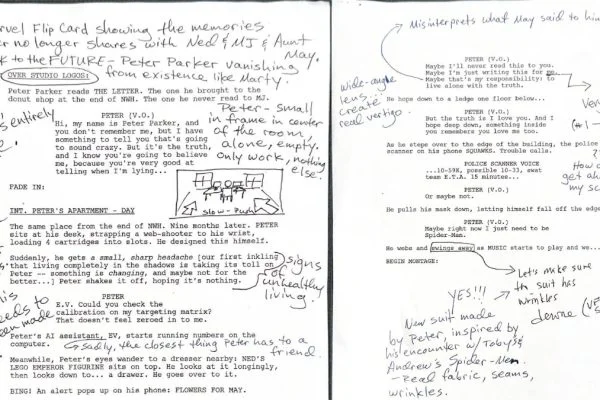 arvel Flip Card showing the memories
er no longer shares with Ned & MJ & Aunt
May.
K to the FUTURE - Peter Parker vanishing
from existence like Marty.
OVER STUDIO LOGOS:
Peter Parker reads THE LETTER. The one he brought to the
donut shop at the end of NWH. The one he never read to MJ.
entirely
PETER (V.O.)
Hi, my name is Peter Parker, and
you don't remember me, but I have
something to tell you that's going
to sound crazy. But it's the truth,
and I know you're going to believe
me, because you're very good at
telling when I'm lying...
Peter - small
in frame in center
of the room,
alone, empty.
Only work, nothing
else
FADE IN:
slow - push
INT. PETER'S APARTMENT - DAY
The same place from the end of NWH. Nine months later. PETER
sits at his desk, strapping a web-shooter to his wrist,
loading 4 cartridges into slots. He designed this himself.
Suddenly, he gets a small, sharp headache [our first inkling
that living completely in the shadows is taking its toll on
Peter -- something is changing, and maybe not for the
better...] Peter shakes it off, hoping it's nothing.
signs
of
unhealthy
living.
eeds to
een made
PETER
E.V. Could you check the
calibration on my targeting matrix?
That doesn't feel zeroed in to me.
Peter's AI assistant, EV, starts running numbers on the
computer.
Sadly, the closest thing Peter has to a
friend.
Meanwhile, Peter's eyes wander to a dresser nearby: NED'S
LEGO EMPEROR FIGURINE sits on top. He looks at it longingly,
then looks down to... a drawer. He goes over to it.
BING! An alert pops up on his phone: FLOWERS FOR MAY.
Misinterprets what May said to him
PETER (V.O.)
Maybe I'll never read this to you.
Maybe I'm just writing this for me.
Maybe that's my responsibility: to
live alone with the truth.
wide-angle
lens...
create
real vertigo.
He hops down to a ledge one floor below...
PETER (V.O.)
But the truth is I love you. And I
hope deep down, something inside
you remembers you love me too.
Ver
(#1 -
As he steps over to the edge of the building, the police
scanner on his phone SQUAWKS. Trouble calls.
How c
get
my sc
POLICE SCANNER VOICE
...10-59K, possible 10-33, swat
team E.T.A. 15 minutes...
PETER (V.O.)
Or maybe not.
He pulls his mask down, letting himself fall off the edge
PETER (V.O.)
Maybe right now I just need to be
Spider-Man.
He webs and swings away as MUSIC starts to play and we...
BEGIN MONTAGE:
Let's make sure
the suit has
wrinkles
YES!!!
New suit made
by Peter, inspired by
his encounter w/ Toby &
Andrew's Spider-Men
- Real fabric, seams,
wrinkles.